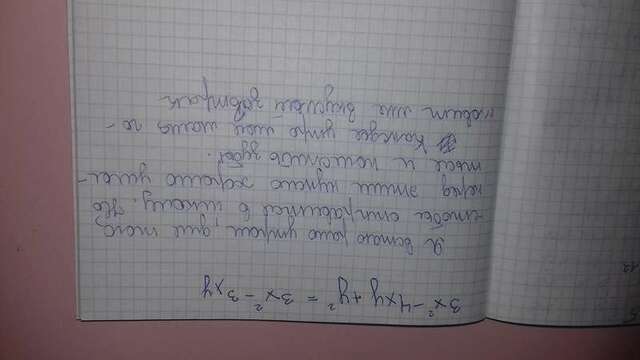 3x² - 4xy + y² = 3x² - 3xy
Я встаю рано утром, для того
чтобы отправится в школу. Но
перед этим нужно хорошо умы-
ться и почистить зубы.
Каждое утро моя мама го-
товит мне вкусный завтрак